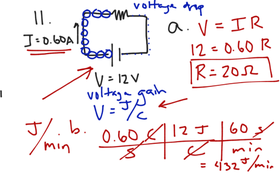 11.
voltage drop
I = 0.60A
V = 12V
voltage gain
V = J/C
a. V = IR
12 = 0.60 R
R = 20Ω
J/min
b. 0.60 C/s | 12 J/C | 60 s/min
= 432 J/min